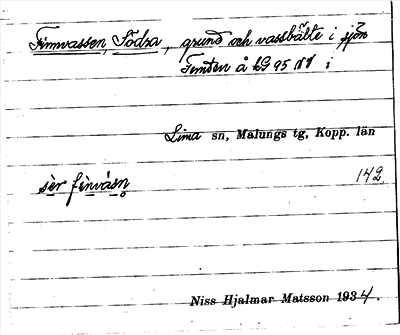 Finnvassen, Södra, grund och vassbälte i sjön
Femten å kG 95 NV i
Lima sn, Malungs tg, Kopp. län
sèr finvásn 142
Niss Hjalmar Matsson 1934.